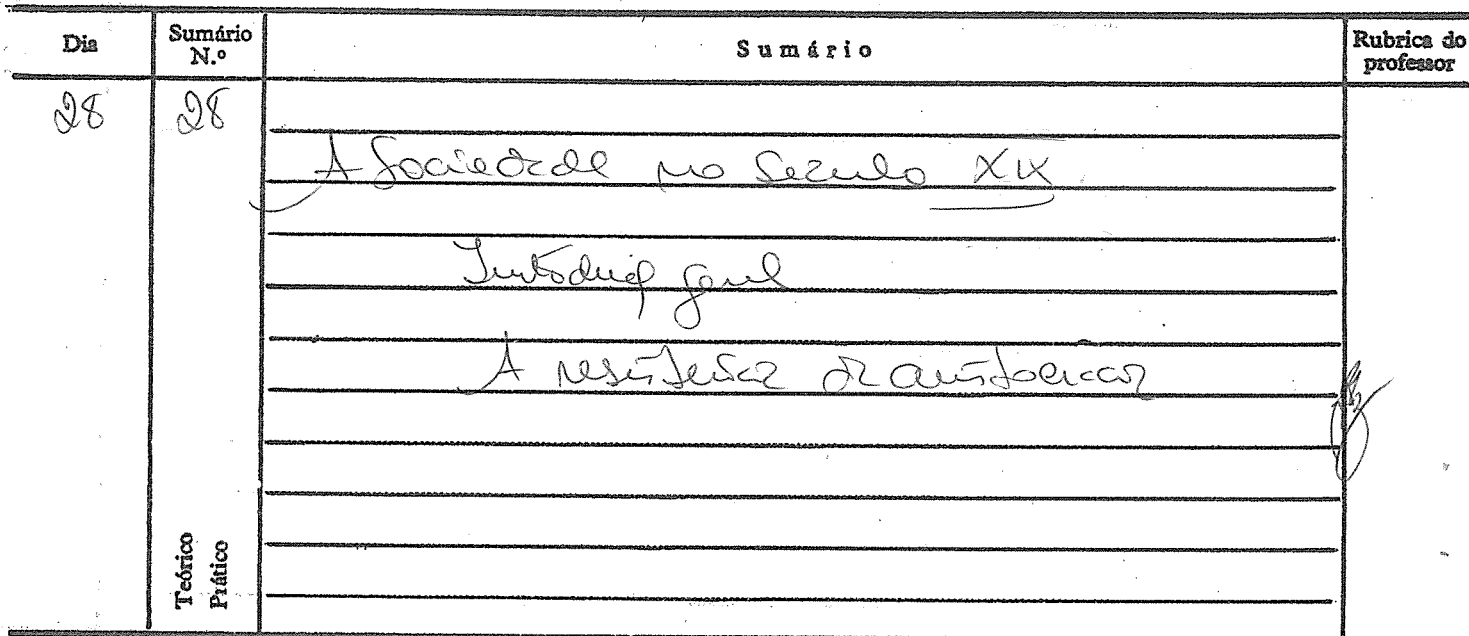 Dia Sumário N.º Sumário Rubrica do professor
28 28
A Sociedade no Seculo XIX
Introduçã geral
A resistência da aristocracia
Teórico
Prático